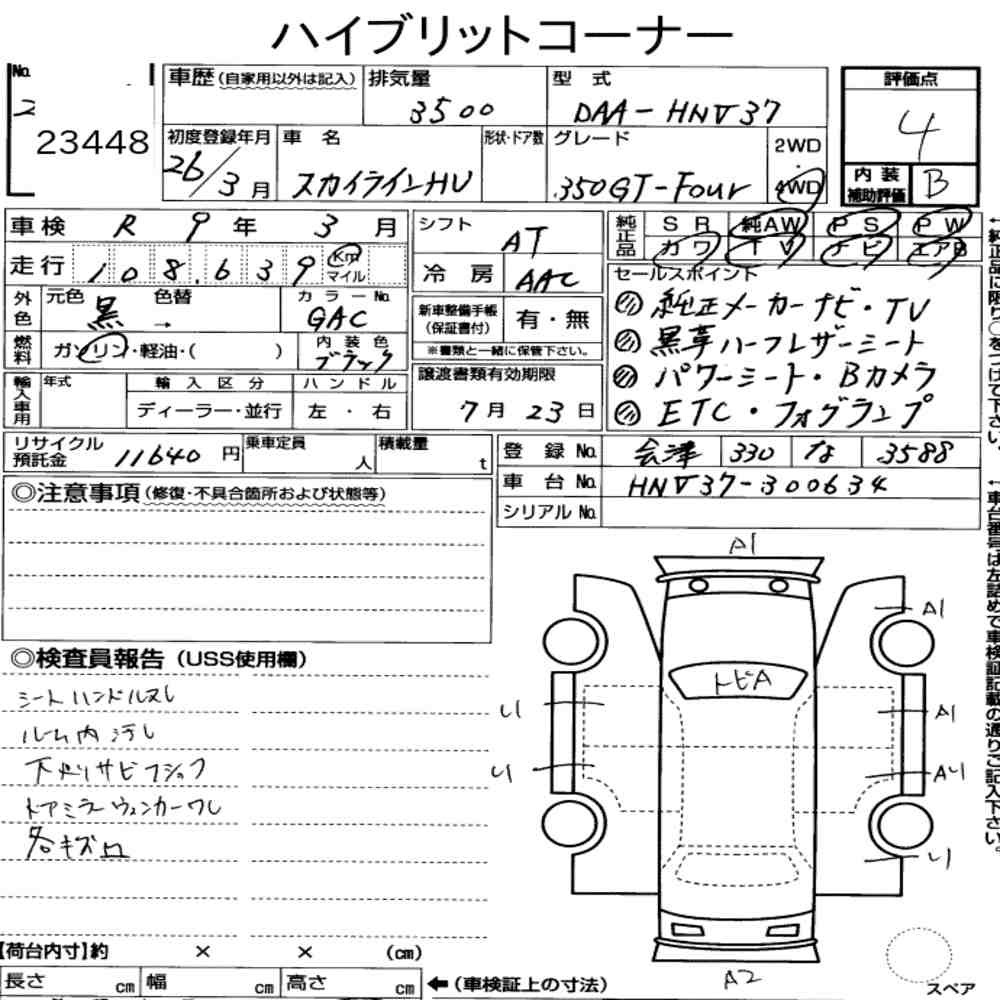 ハイブリットコーナー
No. 2
23448
車歴(自家用以外は記入)
排気量 3500
型式 DAA-HNV37
評価点 4
初度登録年月 26/3月
車名 スカイラインHV
形状・ドア数
グレード 350GT-Four
2WD
4WD
内装補助評価 B
車検 R 9年 3月
走行 108.639 Km マイル
シフト AT
冷房 AAC
純正品 SR 純AW PS PW
カワ TV ナビ エアB
外色 元色 黒 → 色替
カラーNo. GAC
燃料 ガソリン・軽油・( )
内装色 ブラック
新車整備手帳(保証書付) 有・無
※書類と一緒に保管下さい。
セールスポイント
純正メーカーナビ・TV
黒革ハーフレザーシート
パワーシート・Bカメラ
ETC・フォグランプ
輸入車用 年式 輸入区分 ハンドル
ディーラー・並行 左・右
譲渡書類有効期限
7月23日
リサイクル預託金 11640円
乗車定員 人
積載量 t
登録No. 会津 330 な 3588
車台No. HNV37-300634
シリアルNo.
◎注意事項(修復・不具合箇所および状態等)
◎検査員報告(USS使用欄)
シートハンドルスレ
ルーム内汚レ
下廻リサビフショク
ドアミラーウィンカーワレ
各キズ凹
A1
A1
トビA
A1
A2
【荷台内寸】約 × × (cm)
長さ cm 幅 cm 高さ cm ←(車検証上の寸法)
スペア
←純正品に限り○をつけて下さい。
←車台番号は左詰めで車検証記載の通りご記入下さい。